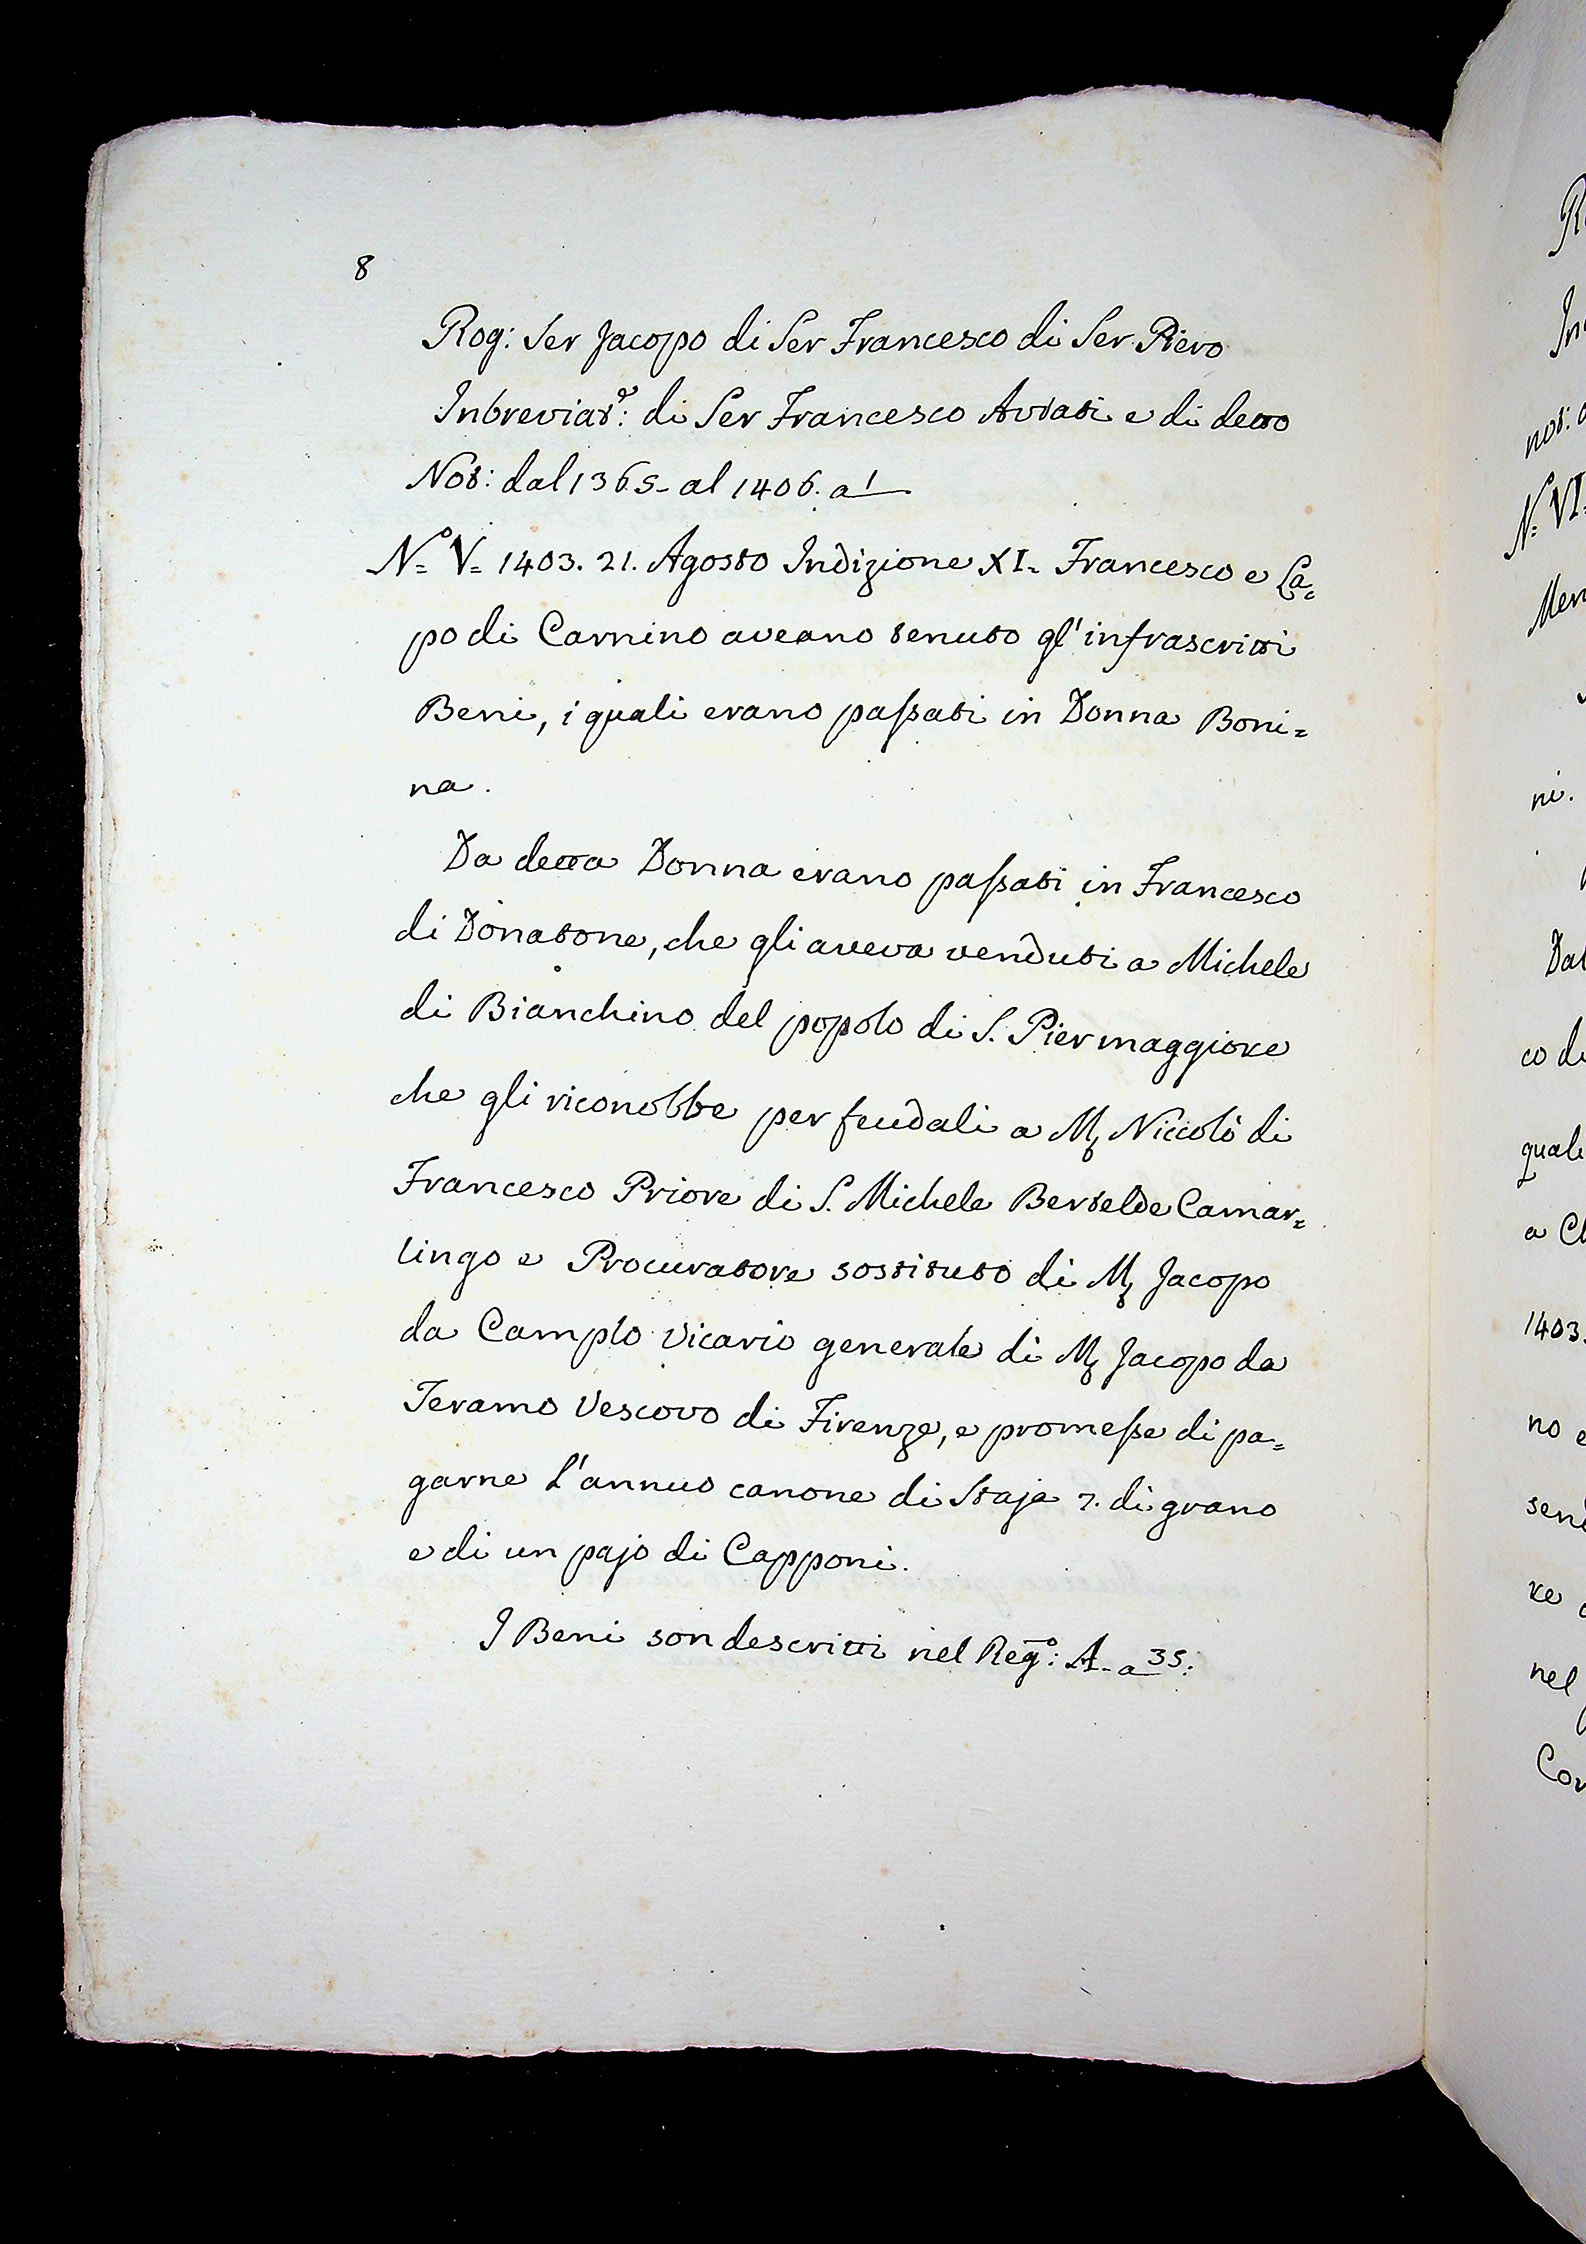 8
Rog: Ser Jacopo di Ser Francesco di Ser Piero
Inbreviatᵉ: di Ser Francesco Avtati e di detto
Not: dal 1365- al 1406. a 1
Nº= V= 1403. 21. Agosto Indizione XI= Francesco e La=
po di Carnino aveano tenuto gl'infrascritti
Beni, i quali erano paſsati in Donna Boni=
na.
Da detta Donna erano paſsati in Francesco
di Donatone, che gli aveva venduti a Michele
di Bianchino del popolo di S. Pier maggiore
che gli riconobbe per feudali a M. Niccolò di
Francesco Priore di S. Michele Bertelde Camar=
lingo e Procuratore sostituto di M. Jacopo
da Camplo Vicario generale di M. Jacopo da
Teramo Vescovo di Firenze, e promeſse di pa=
garne l'annuo canone di Staja 7. di grano
e di un pajo di Capponi.
I Beni son descritti nel Regº: A- a 35:
R
In
not:
N= VI=
Men
ni.
Dal
co di
quali
a Ch
1403.
no e
send
re
nel
Cor